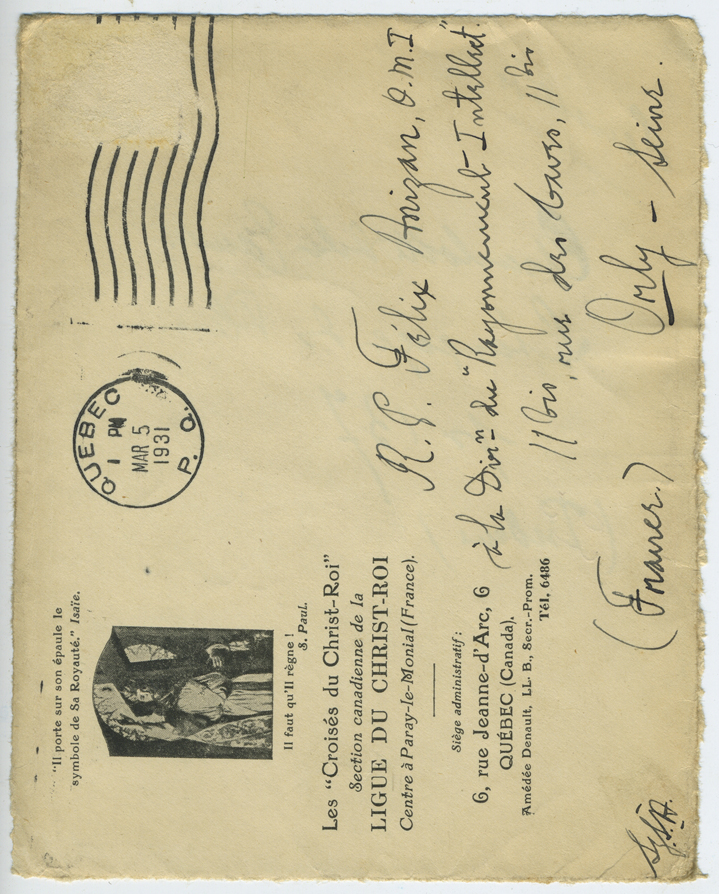 "Il porte sur son épaule le
symbole de Sa Royauté." Isaïe.
Il faut qu'Il règne !
S. Paul.
Les "Croisés du Christ-Roi"
Section canadienne de la
LIGUE DU CHRIST-ROI
Centre à Paray-le-Monial (France).
Siège administratif :
6, rue Jeanne-d'Arc, 6
QUÉBEC (Canada).
Amédée Denault, LL. B., Secr.-Prom.
Tél. 6486
QUEBEC
1 PM
MAR 5
1931
P. Q.
R. P. Félix Anizan, O.M.I
à la Dion du "Rayonnement-Intellect."
11 bis, rue des Caves, 11 bis
Orly - Seine.
(France.)